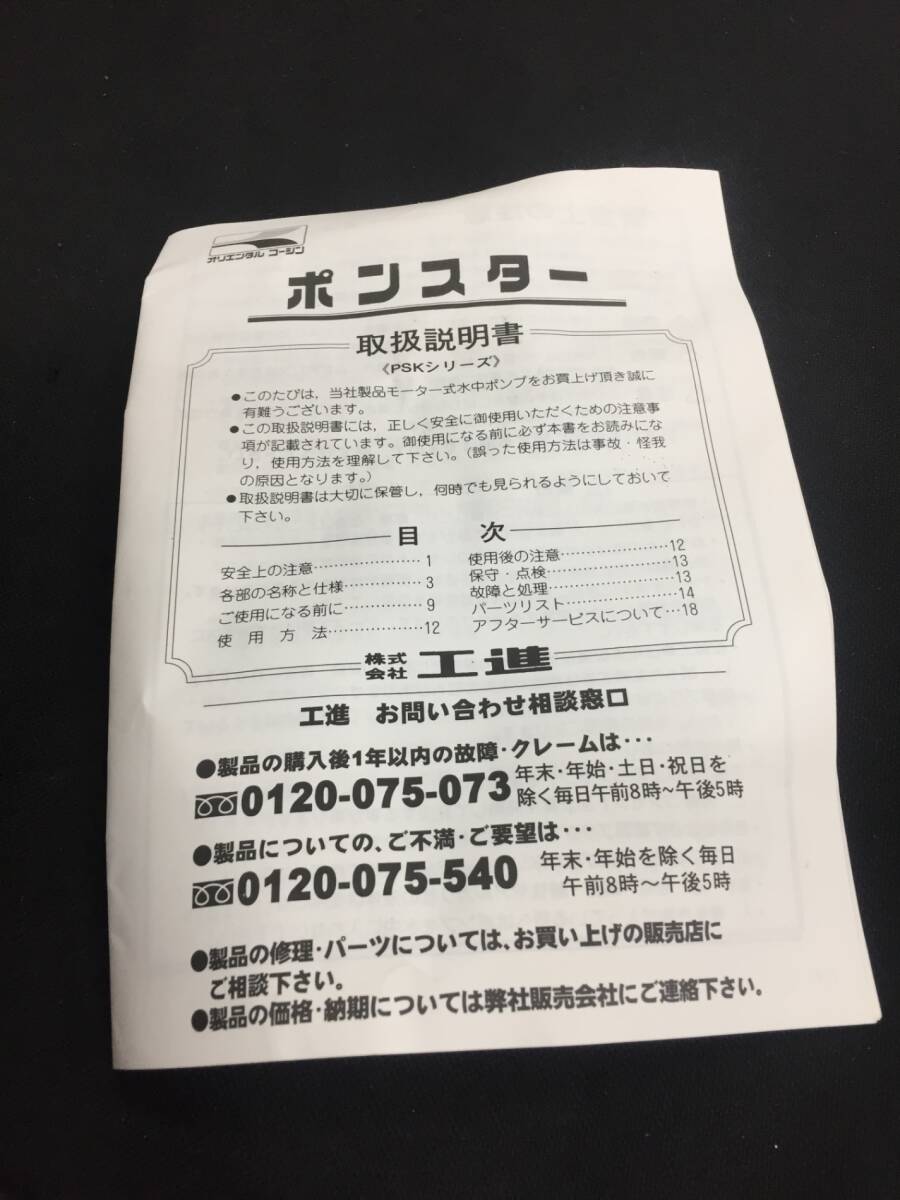 オリエンタル コーシン
ポンスター
取扱説明書
《PSKシリーズ》
●このたびは，当社製品モーター式水中ポンプをお買上げ頂き誠に
有難うございます。
●この取扱説明書には，正しく安全に御使用いただくための注意事
項が記載されています。御使用になる前に必ず本書をお読みにな
り，使用方法を理解して下さい。（誤った使用方法は事故・怪我
の原因となります。）
●取扱説明書は大切に保管し，何時でも見られるようにしておいて
下さい。
目 次
安全上の注意…………………1
各部の名称と仕様……………3
ご使用になる前に……………9
使 用 方 法………………12
使用後の注意…………………12
保守・点検……………………13
故障と処理……………………13
パーツリスト…………………14
アフターサービスについて…18
株式会社 工進
工進 お問い合わせ相談窓口
●製品の購入後1年以内の故障・クレームは・・・
0120-075-073 年末・年始・土日・祝日を
除く毎日午前8時～午後5時
●製品についての、ご不満・ご要望は・・・
0120-075-540 年末・年始を除く毎日
午前8時～午後5時
●製品の修理・パーツについては、お買い上げの販売店に
ご相談下さい。
●製品の価格・納期については弊社販売会社にご連絡下さい。